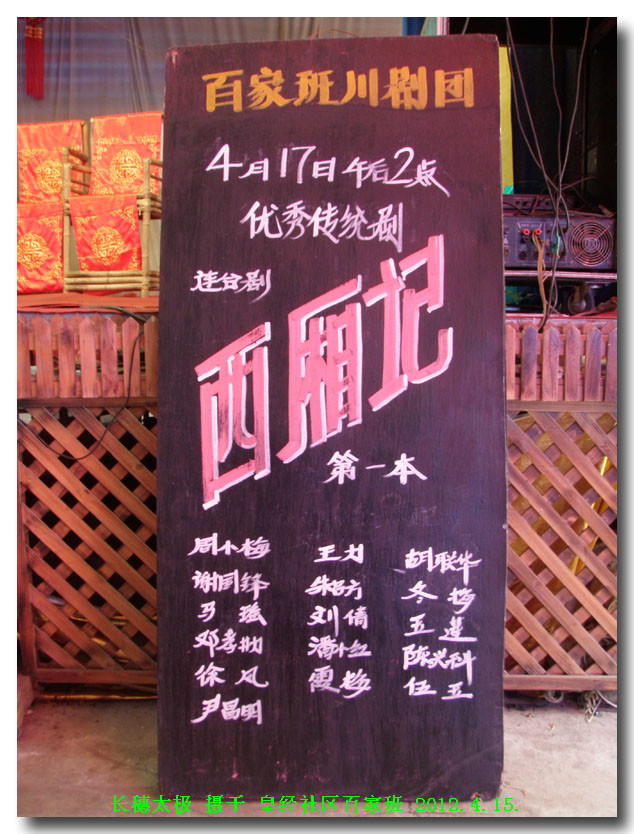 百家班川剧团
4月17日午后2点
优秀传统剧
连台剧
西厢记
第一本
周小梅 王力 胡联华
谢国锋 朱召方 冬梅
马强 刘倩 五莲
邓孝 潘小红 陈兴科
徐凤 霞梅 伍五
尹昌明
长穗太极 摄于 皇经社区百家班 2012.4.15.